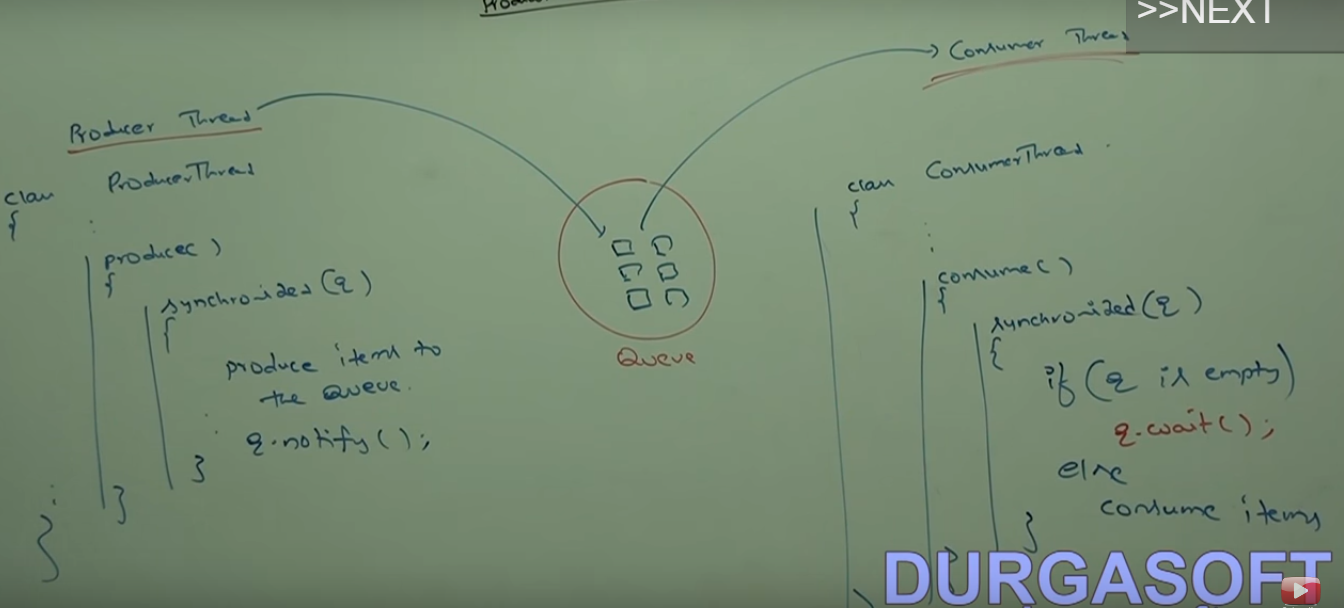 >>NEXT
Producer Thread
class ProducerThread
{
:
produce( )
{
synchronized(q)
{
produce items to
the Queue.
:
q.notify( );
}
}
:
}
Queue
Consumer Thread
class ConsumerThread
{
:
consume( )
{
synchronized(q)
{
if (q is empty)
q.wait( );
else
consume items
}
}
DURGASOFT